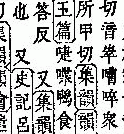 切音帀嘈啐衆
所甲切集韻
玉篇啑喋鴨食
答反 又集韻
也 又史記呂